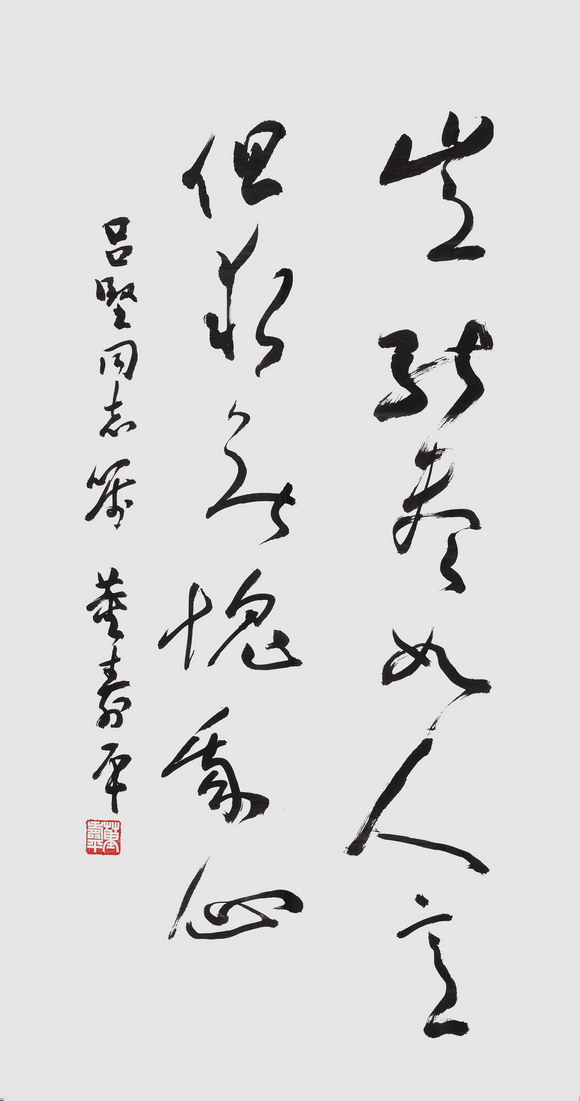 岂能尽如人意
但求无愧我心
吕坚同志属 董寿平
董寿平